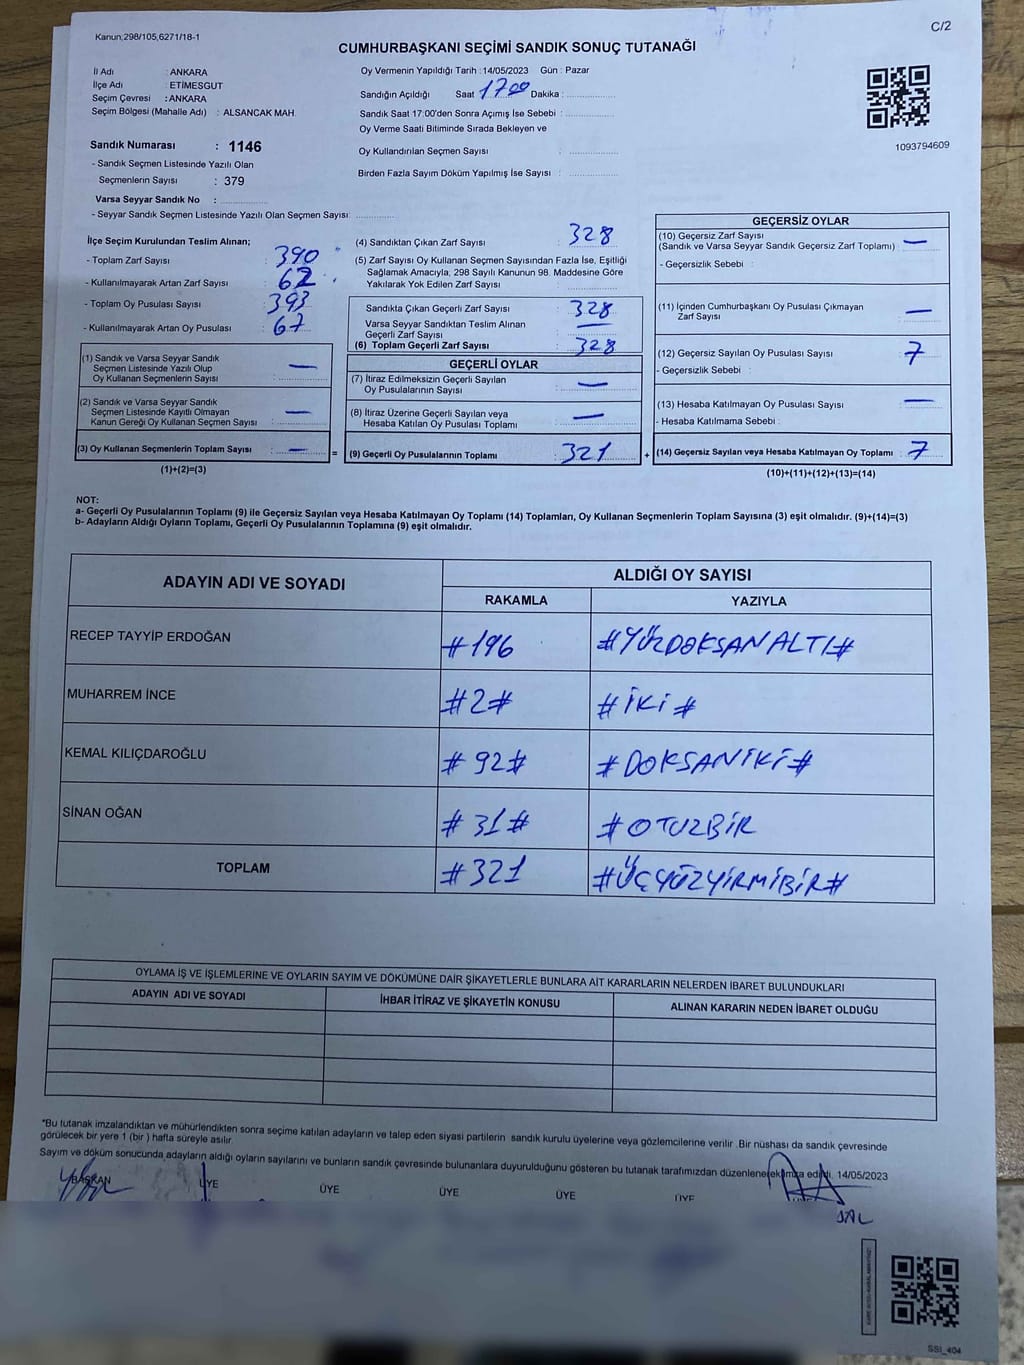 Kanun,298/105,6271/18-1
C/2
CUMHURBAŞKANI SEÇİMİ SANDIK SONUÇ TUTANAĞI
İl Adı : ANKARA
İlçe Adı : ETİMESGUT
Seçim Çevresi : ANKARA
Seçim Bölgesi (Mahalle Adı) : ALSANCAK MAH.
Sandık Numarası : 1146
- Sandık Seçmen Listesinde Yazılı Olan
Seçmenlerin Sayısı : 379
Varsa Seyyar Sandık No :
- Seyyar Sandık Seçmen Listesinde Yazılı Olan Seçmen Sayısı:
Oy Vermenin Yapıldığı Tarih :14/05/2023 Gün : Pazar
Sandığın Açıldığı Saat 17 00 Dakika :
Sandık Saat 17:00'den Sonra Açımış İse Sebebi :
Oy Verme Saati Bitiminde Sırada Bekleyen ve
Oy Kullandırılan Seçmen Sayısı :
Birden Fazla Sayım Döküm Yapılmış İse Sayısı :
1093794609
İlçe Seçim Kurulundan Teslim Alınan;
- Toplam Zarf Sayısı : 390
- Kullanılmayarak Artan Zarf Sayısı : 62
- Toplam Oy Pusulası Sayısı : 393
- Kullanılmayarak Artan Oy Pusulası : 67
(1) Sandık ve Varsa Seyyar Sandık
Seçmen Listesinde Yazılı Olup
Oy Kullanan Seçmenlerin Sayısı : —
(2) Sandık ve Varsa Seyyar Sandık
Seçmen Listesinde Kayıtlı Olmayan
Kanun Gereği Oy Kullanan Seçmen Sayısı : —
(3) Oy Kullanan Seçmenlerin Toplam Sayısı : — =
(1)+(2)=(3)
(4) Sandıktan Çıkan Zarf Sayısı : 328
(5) Zarf Sayısı Oy Kullanan Seçmen Sayısından Fazla İse, Eşitliği
Sağlamak Amacıyla, 298 Sayılı Kanunun 98. Maddesine Göre
Yakılarak Yok Edilen Zarf Sayısı :
Sandıkta Çıkan Geçerli Zarf Sayısı : 328
Varsa Seyyar Sandıktan Teslim Alınan
Geçerli Zarf Sayısı : —
(6) Toplam Geçerli Zarf Sayısı : 328
GEÇERLİ OYLAR
(7) İtiraz Edilmeksizin Geçerli Sayılan
Oy Pusulalarının Sayısı : —
(8) İtiraz Üzerine Geçerli Sayılan veya
Hesaba Katılan Oy Pusulası Toplamı : —
(9) Geçerli Oy Pusulalarının Toplamı : 321 +
GEÇERSİZ OYLAR
(10) Geçersiz Zarf Sayısı
(Sandık ve Varsa Seyyar Sandık Geçersiz Zarf Toplamı) : —
- Geçersizlik Sebebi :
(11) İçinden Cumhurbaşkanı Oy Pusulası Çıkmayan
Zarf Sayısı : —
(12) Geçersiz Sayılan Oy Pusulası Sayısı : 7
- Geçersizlik Sebebi :
(13) Hesaba Katılmayan Oy Pusulası Sayısı : —
- Hesaba Katılmama Sebebi :
(14) Geçersiz Sayılan veya Hesaba Katılmayan Oy Toplamı : 7
(10)+(11)+(12)+(13)=(14)
NOT:
a- Geçerli Oy Pusulalarının Toplamı (9) ile Geçersiz Sayılan veya Hesaba Katılmayan Oy Toplamı (14) Toplamları, Oy Kullanan Seçmenlerin Toplam Sayısına (3) eşit olmalıdır. (9)+(14)=(3)
b- Adayların Aldığı Oyların Toplamı, Geçerli Oy Pusulalarının Toplamına (9) eşit olmalıdır.
ADAYIN ADI VE SOYADI
ALDIĞI OY SAYISI
RAKAMLA YAZIYLA
RECEP TAYYİP ERDOĞAN #196 #YÜZDOKSANALTI#
MUHARREM İNCE #2# #İKİ#
KEMAL KILIÇDAROĞLU #92# #DOKSANİKİ#
SİNAN OĞAN #31# #OTUZBİR
TOPLAM #321 #ÜÇYÜZYİRMİBİR#
OYLAMA İŞ VE İŞLEMLERİNE VE OYLARIN SAYIM VE DÖKÜMÜNE DAİR ŞİKAYETLERLE BUNLARA AİT KARARLARIN NELERDEN İBARET BULUNDUKLARI
ADAYIN ADI VE SOYADI İHBAR İTİRAZ VE ŞİKAYETİN KONUSU ALINAN KARARIN NEDEN İBARET OLDUĞU
*Bu tutanak imzalandıktan ve mühürlendikten sonra seçime katılan adayların ve talep eden siyasi partilerin sandık kurulu üyelerine veya gözlemcilerine verilir .Bir nüshası da sandık çevresinde
görülecek bir yere 1 (bir ) hafta süreyle asılır.
Sayım ve döküm sonucunda adayların aldığı oyların sayılarını ve bunların sandık çevresinde bulunanlara duyurulduğunu gösteren bu tutanak tarafımızdan düzenlenerek imza edildi. 14/05/2023
BAŞKAN ÜYE ÜYE ÜYE ÜYE ÜYE
SSI_404